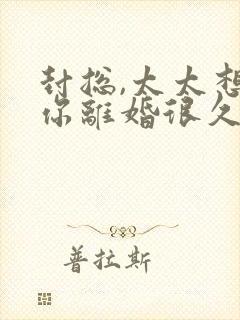 封总,太太想
你離婚很久
普拉斯